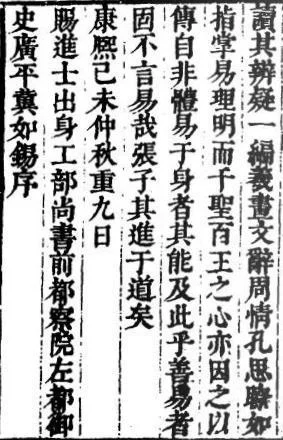 讀其辨疑一編羲畫文辭周情孔思瞭如
指掌易理明而千聖百王之心亦因之以
傳自非體易于身者其能及此乎善易者
固不言易哉張子其進于道矣
康熙己未仲秋重九日
賜進士出身工部尚書前都察院左都御
史廣平冀如錫序